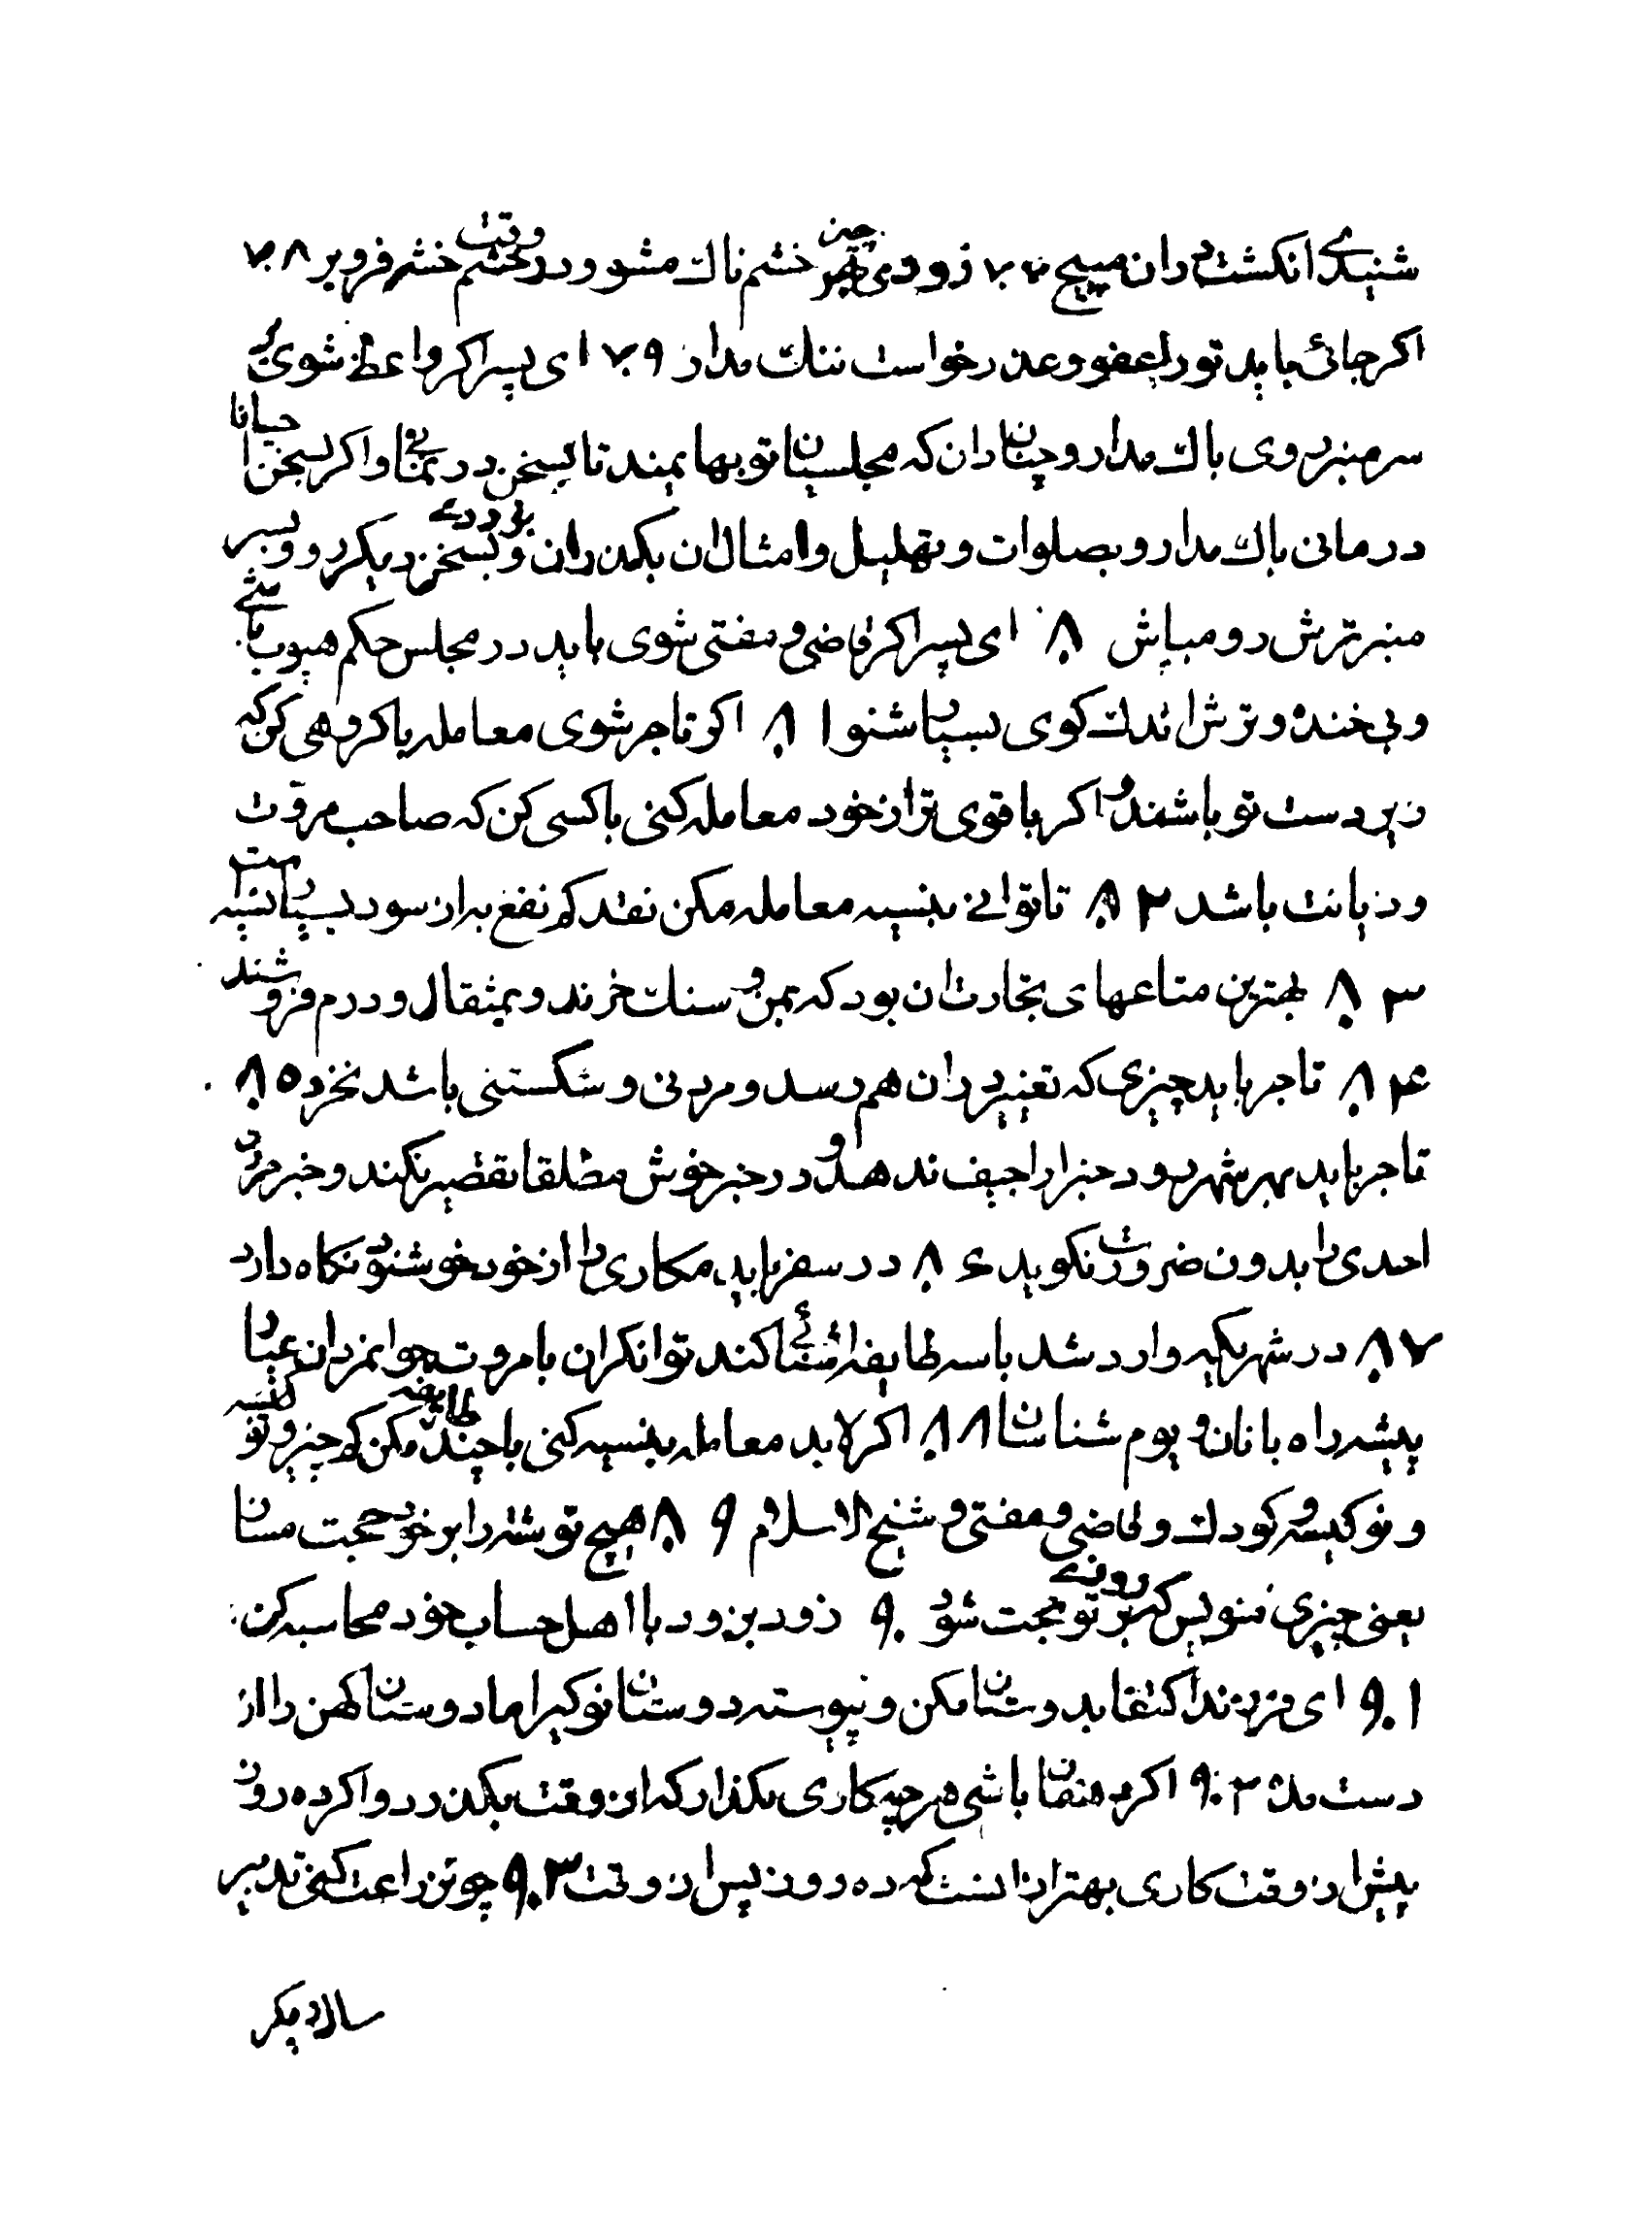 شنیدی انکشت دران مپیچ ۷۷ زود بهر چیز خشم ناك مشو و در وقت خشم خشم فرو بر ۷۸
اکر جائی باید تو را عفو و عذر خواست ننك مدار ۷۹ ای پسر اکر واعظ شوی بر
سر منبر روی باك مدار و چنان دان که مجلسیان تو بهایمند تا بسخن در نمانی و اکر احیانا بسخن
در مانی باك مدار و بصلوات و تهلیل و امثال ان بکذران و بزودی بسخن دیکر رو و بر سر
منبر ترش رو مباش ۸۰ ای پسر اکر قاضی و مفتی شوی باید در مجلس حکم هیوب باشی
و بی خنده و ترش اندك کوی بسیار شنو ۸۱ اکر تاجر شوی معامله با کروهی کن که
زیر دست تو باشند و اکر با قوی تر از خود معامله کنی با کسی کن که صاحب مروت
و دیانت باشد ۸۲ تا توانی بنسیه معامله مکن نقد کم نفع به از سود بسیار نسیه است
۸۳ بهترین متاعهای تجارت ان بود که بمن و سنك خرند و بمثقال و درم فروشند
۸۴ تاجر باید چیزی که تغییر دران هم رسد و مردنی و شکستنی باشد نخرد ۸۵
تاجر باید بهر شهر رود خبر اراجیف ندهد و در خبر خوش مطلقا تقصیر نکند و خبر مردن
احدی را بدون ضرورت نکوید ۸۶ در سفر باید مکاری را از خود خوشنود نکاه دارد
۸۷ در شهر که وارد شد با سه طایفه اشنائی کند توانکران با مروت جوانمردان عیار
پیشه راه بانان و بوم شناسان ۸۸ اکر لابد معامله بنسیه کنی با چند طایفه مکن کم چیز و نو کیسه
و نو کیسه و کودك و قاضی و مفتی و شیخ الاسلام ۸۹ هیچ نوشته را بر خود حجت مسان
یعنی چیزی ننویس که روزی بر تو حجت شود ۹۰ زود بزود با اهل حساب خود محاسبه کن
۹۱ ای فرزند اکتفا بدوستان مکن و پیوسته دوستان نو کیر اما دوستان کهن را از
دست مده ۹۲ اکر دهقان باشی هر چه کاری مکذار که از وقت بکذرد و اکر ده روز
پیش از وقت کاری بهتر ازانست که ده روز پس از وقت ۹۳ چون زراعت کنی تدبیر
سال دیکر